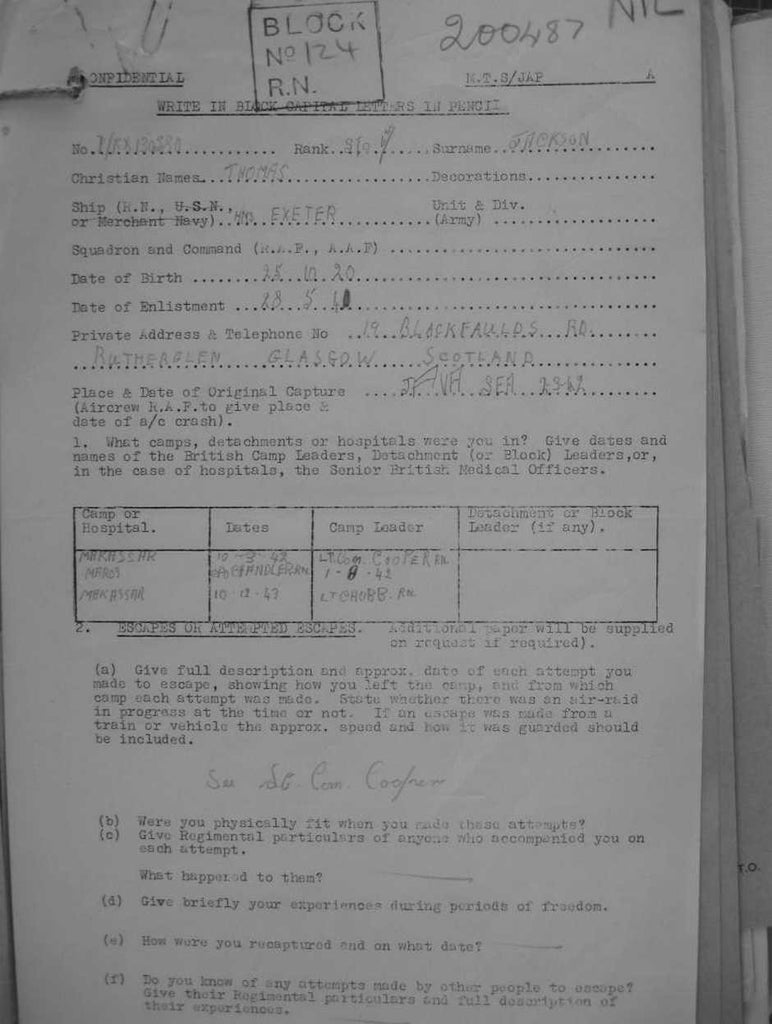 NIL
BLOCK
Nº 124
R.N.
200487
CONFIDENTIAL M.T.S/JAP A
WRITE IN BLOCK CAPITAL LETTERS IN PENCIL
No. Rank..Sto..... Surname..JACKSON
Christian Names...THOMAS......Decorations
Ship (R.N., U.S.N., Unit & Div.
or Merchant Navy)..HMS. EXETER (Army)
Squadron and Command (R.A.F., A.A.F)
Date of Birth ........25...10..20
Date of Enlistment ...28...5..
Private Address & Telephone No ..19..BLACKFAULDS..RD.
RUTHERGLEN GLASGOW SCOTLAND
Place & Date of Original Capture ....JAVA SEA
(Aircrew R.A.F.to give place &
date of a/c crash).
1. What camps, detachments or hospitals were you in? Give dates and
names of the British Camp Leaders, Detachment (or Block) Leaders,or,
in the case of hospitals, the Senior British Medical Officers.
Camp or Hospital. Dates Camp Leader Detachment or Block Leader (if any).
MAKASSAR 10-3-42 LT. COM. COOPER RN.
MAROS CPO CHANDLER RN. 1-8-42
MAKASSAR 10-12-43 LT CHUBB. RN.
2. ESCAPES OR ATTEMPTED ESCAPES. Additional paper will be supplied
on request if required).
(a) Give full description and approx. date of each attempt you
made to escape, showing how you left the camp, and from which
camp each attempt was made. State whether there was an air-raid
in progress at the time or not. If an escape was made from a
train or vehicle the approx. speed and how it was guarded should
be included.
See Lt. Com. Cooper
(b) Were you physically fit when you made these attempts?
(c) Give Regimental particulars of anyone who accompanied you on
each attempt.
What happened to them?
(d) Give briefly your experiences during periods of freedom.
(e) How were you recaptured and on what date?
(f) Do you know of any attempts made by other people to escape?
Give their Regimental particulars and full description of
their experiences.
T.O.